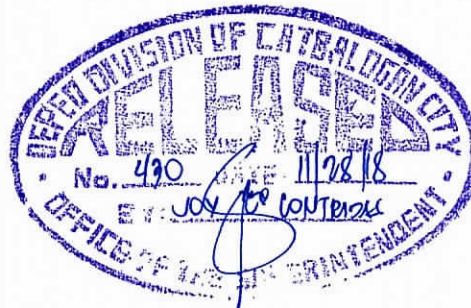 DEPED DIVISION OF CATBALOGAN CITY
RELEASED
No. 430 DATE: 11/28/18
BY: JOY
OFFICE OF THE SUPERINTENDENT